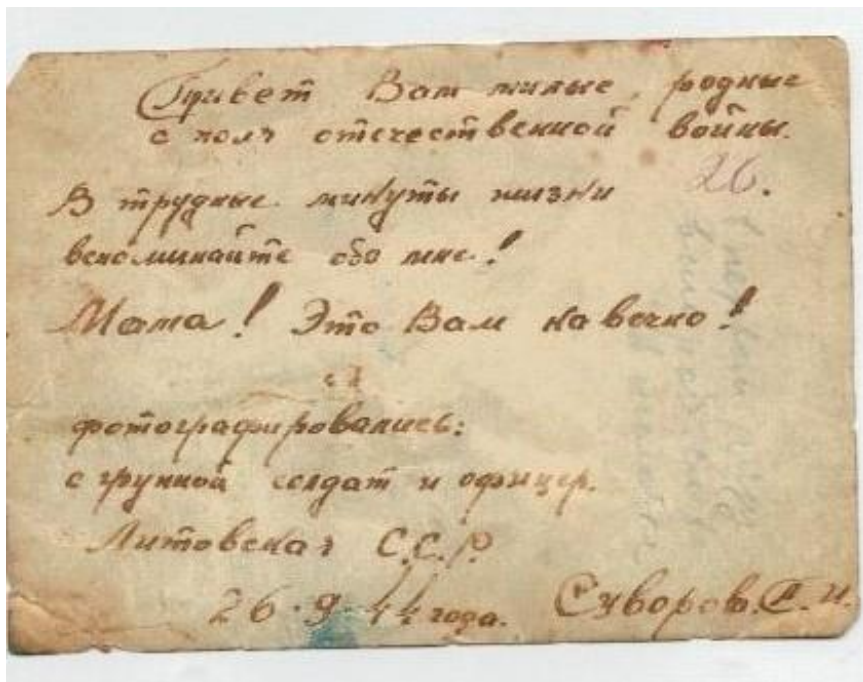 Привет Вам милые, родные
с поля отечественной войны.
В трудные минуты жизни 26.
вспоминайте обо мне!
Мама! Это Вам на вечно!
фотографировались:
с группой солдат и офицер.
Литовская С.С.Р.
26.9.44 года. Суворов.